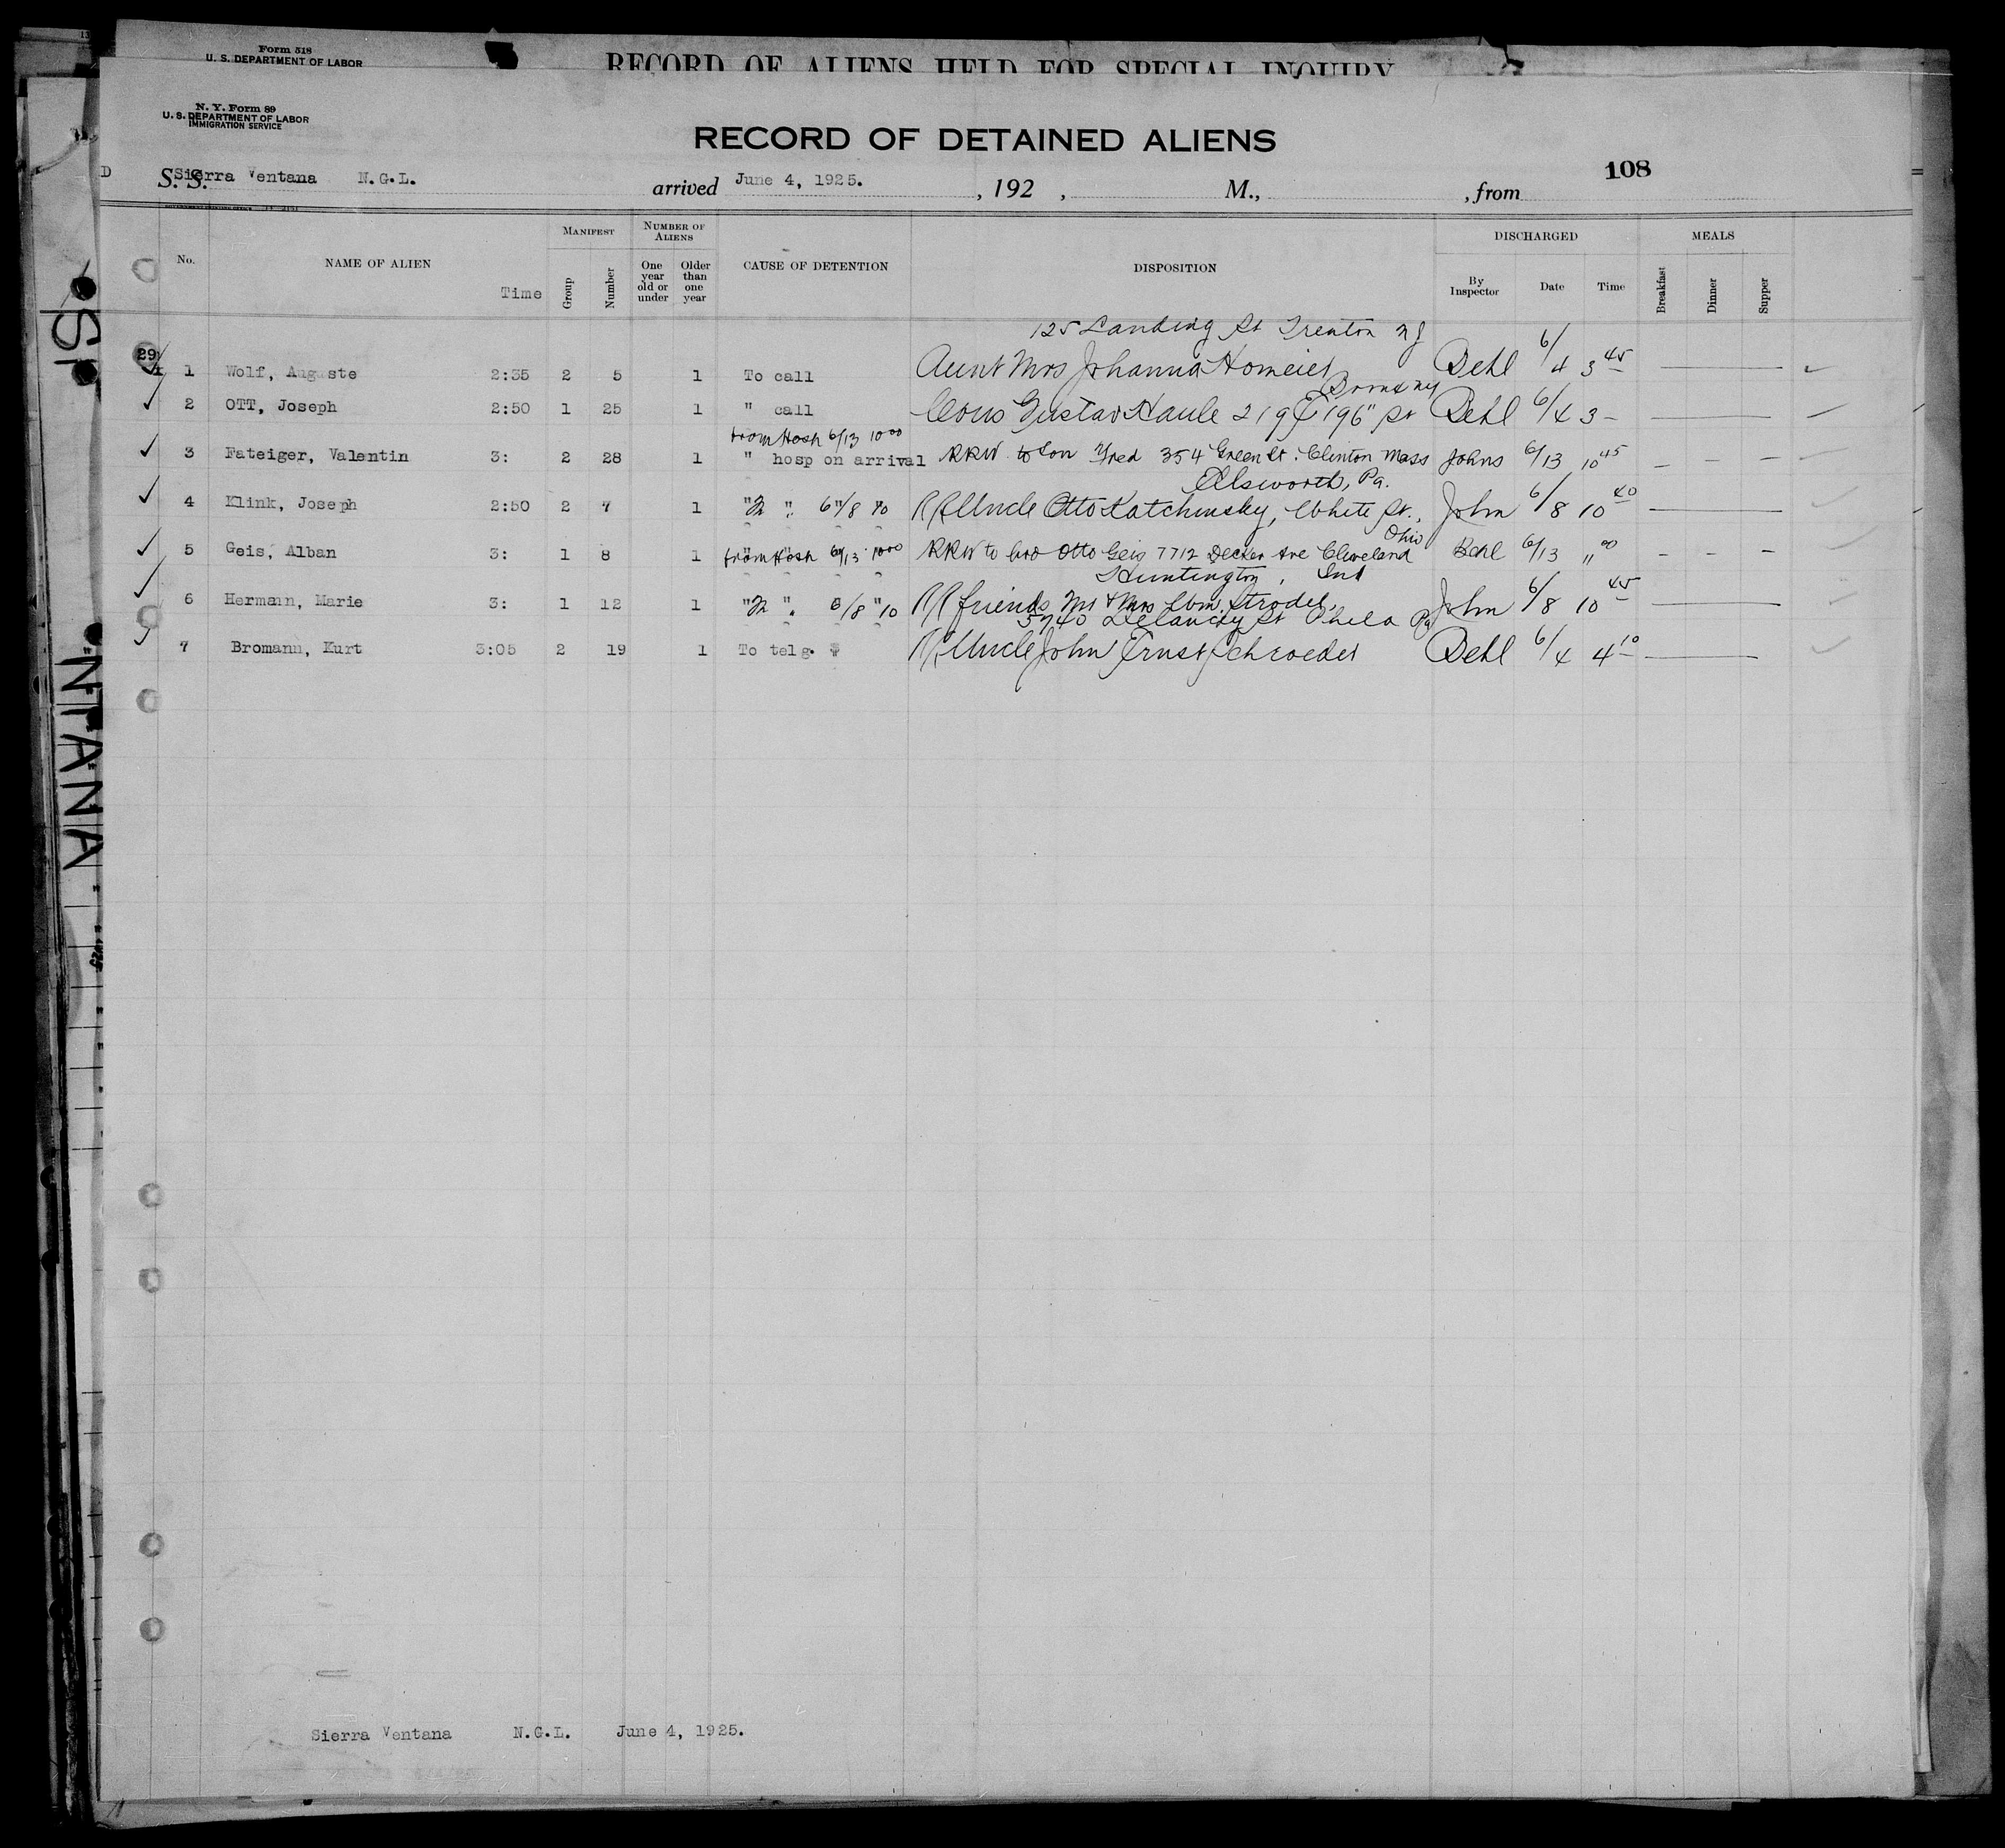 Form 518
U. S. DEPARTMENT OF LABOR
RECORD OF ALIENS HELD FOR SPECIAL INQUIRY
N. Y. Form 89
U. S. DEPARTMENT OF LABOR
IMMIGRATION SERVICE
RECORD OF DETAINED ALIENS
108
S. S. Sierra Ventana N.G.L. arrived June 4, 1925. , 192 , M., , from
No. NAME OF ALIEN Time MANIFEST Group Number NUMBER OF ALIENS One year old or under Older than one year CAUSE OF DETENTION DISPOSITION DISCHARGED By Inspector Date Time MEALS Breakfast Dinner Supper
29
125 Landing St Trenton NJ
1 Wolf, Auguste 2:35 2 5 1 To call Aunt Mrs Johanna Homeier Behl 6/4 3 45
Bronx NY
2 OTT, Joseph 2:50 1 25 1 " call Cous Gustav Haule 219 E 196" St Behl 6/4 3 —
from Hosp 6/13 10 00
3 Fateiger, Valentin 3: 2 28 1 " hosp on arrival RRW to Son Fred 354 Green St. Clinton Mass Johns 6/13 10 45 – – –
Elsworth, Pa.
4 Klink, Joseph 2:50 2 7 1 " " 6/8 10 RR Uncle Otto Katchinsky, White St., John 6/8 10 40
Ohio
5 Geis, Alban 3: 1 8 1 from Hosp 6/13 10 00 RRW to bro Otto Geis 7712 Decker Ave Cleveland Behl 6/13 " 00 – – –
Huntington, Ind
6 Hermann, Marie 3: 1 12 1 " " 6/8 10 RR friends Mr & Mrs Wm. Strodel, John 6/8 10 45
5740 Delancey St Phila Pa
7 Bromann, Kurt 3:05 2 19 1 To telg. RR Uncle John Ernst Schroeder Behl 6/4 4 10
Sierra Ventana N.G.L. June 4, 1925.
NTANA